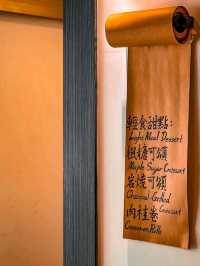 輕食甜點:
Light Meal Dessert
楓糖可頌
Maple Sugar Croissant
岩燒可頌
Charcoal-Grilled
Croissant
肉桂卷
Cinnamon Rolls